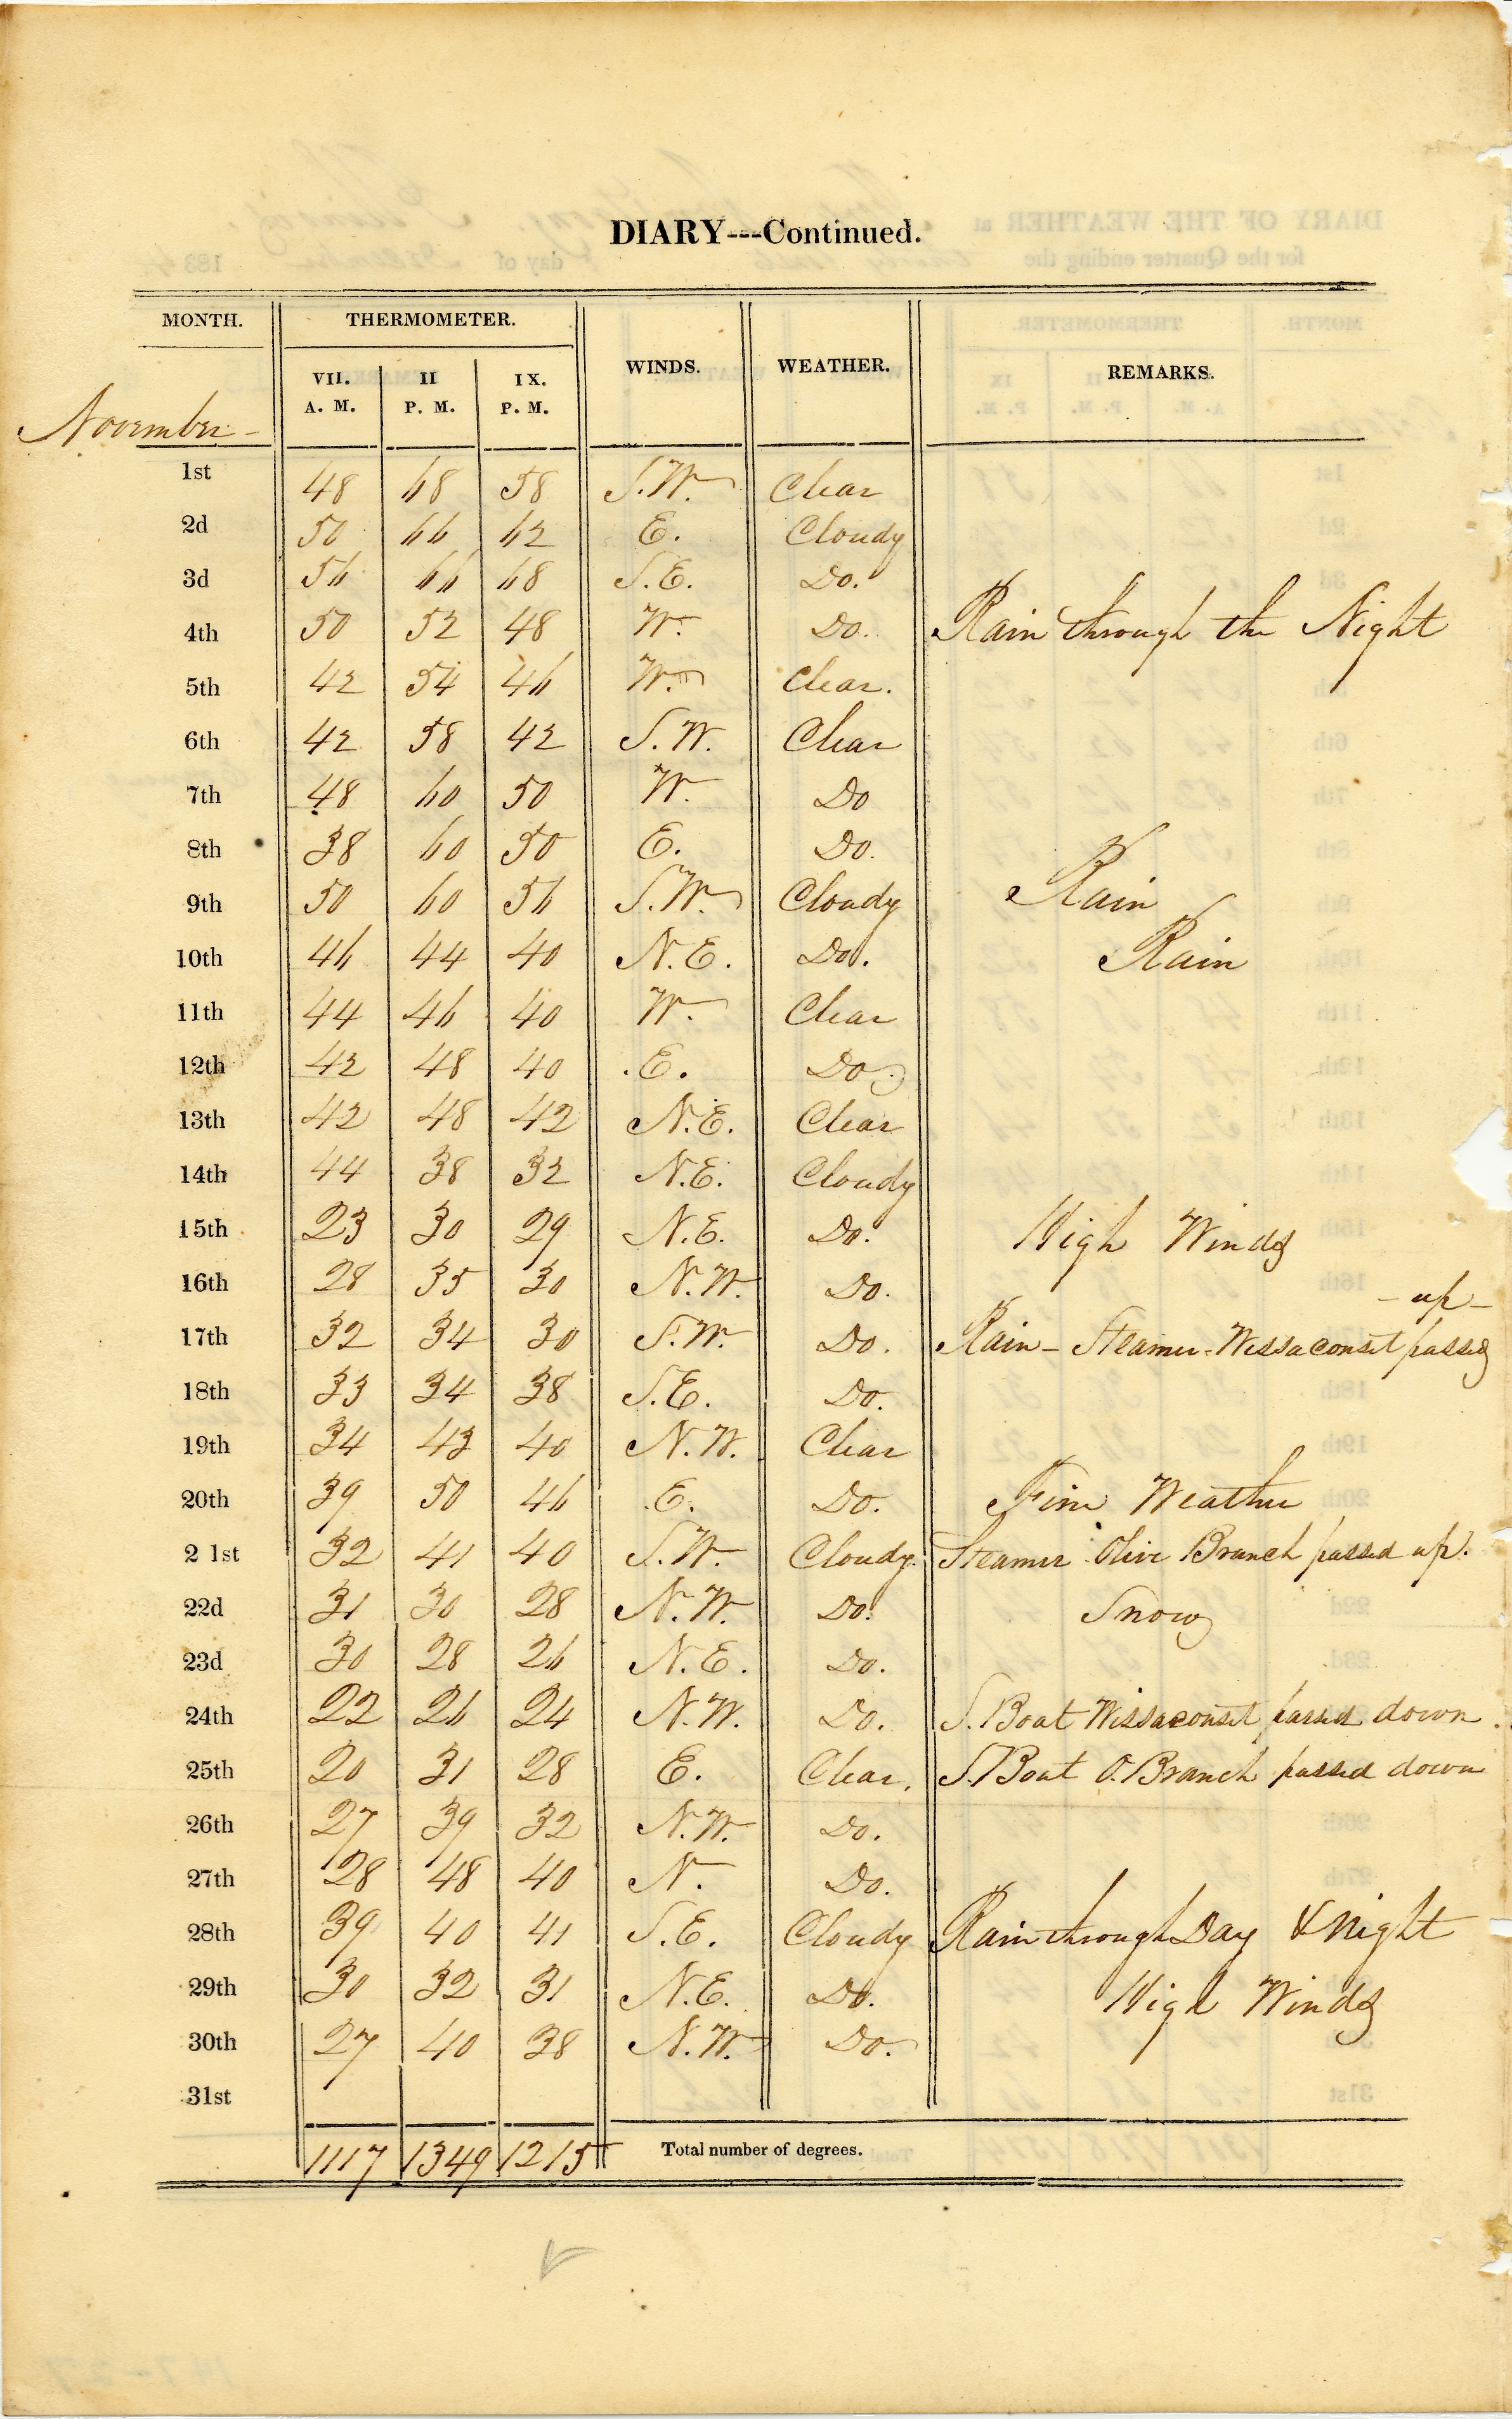 DIARY---Continued.
MONTH. THERMOMETER. WINDS. WEATHER. REMARKS.
VII. A. M. II P. M. IX. P. M.
November -
1st 48 68 58 S.W. Clear
2d 50 66 62 E. Cloudy
3d 56 66 68 S.E. Do.
4th 50 52 48 W. Do. Rain through the Night
5th 42 54 46 W. Clear.
6th 42 58 42 S.W. Clear
7th 48 60 50 W. Do
8th 38 60 50 E. Do.
9th 50 60 56 S.W. Cloudy Rain
10th 46 44 40 N.E. Do. Rain
11th 44 46 40 W. Clear
12th 42 48 40 E. Do.
13th 42 48 42 N.E. Clear
14th 44 38 32 N.E. Cloudy
15th 23 30 29 N.E. Do. High Winds
16th 28 35 30 N.W. Do.
- up -
17th 32 34 30 S.W. Do. Rain - Steamer Wissaconset passed
18th 33 34 38 S.E. Do.
19th 34 43 40 N.W. Clear
20th 39 50 46 E. Do. Fine Weather
21st 32 41 40 S.W. Cloudy. Steamer Olive Branch passed up.
22d 31 30 28 N.W. Do. Snow
23d 30 28 26 N.E. Do.
24th 22 26 24 N.W. Do. S. Boat Wissaconset passed down.
25th 20 31 28 E. Clear. S. Boat O. Branch passed down
26th 27 39 32 N.W. Do.
27th 28 48 40 N. Do.
28th 39 40 41 S.E. Cloudy Rain through Day & Night
29th 30 32 31 N.E. Do. High Winds
30th 27 40 38 N.W. Do.
31st
1117 1349 1215 Total number of degrees.